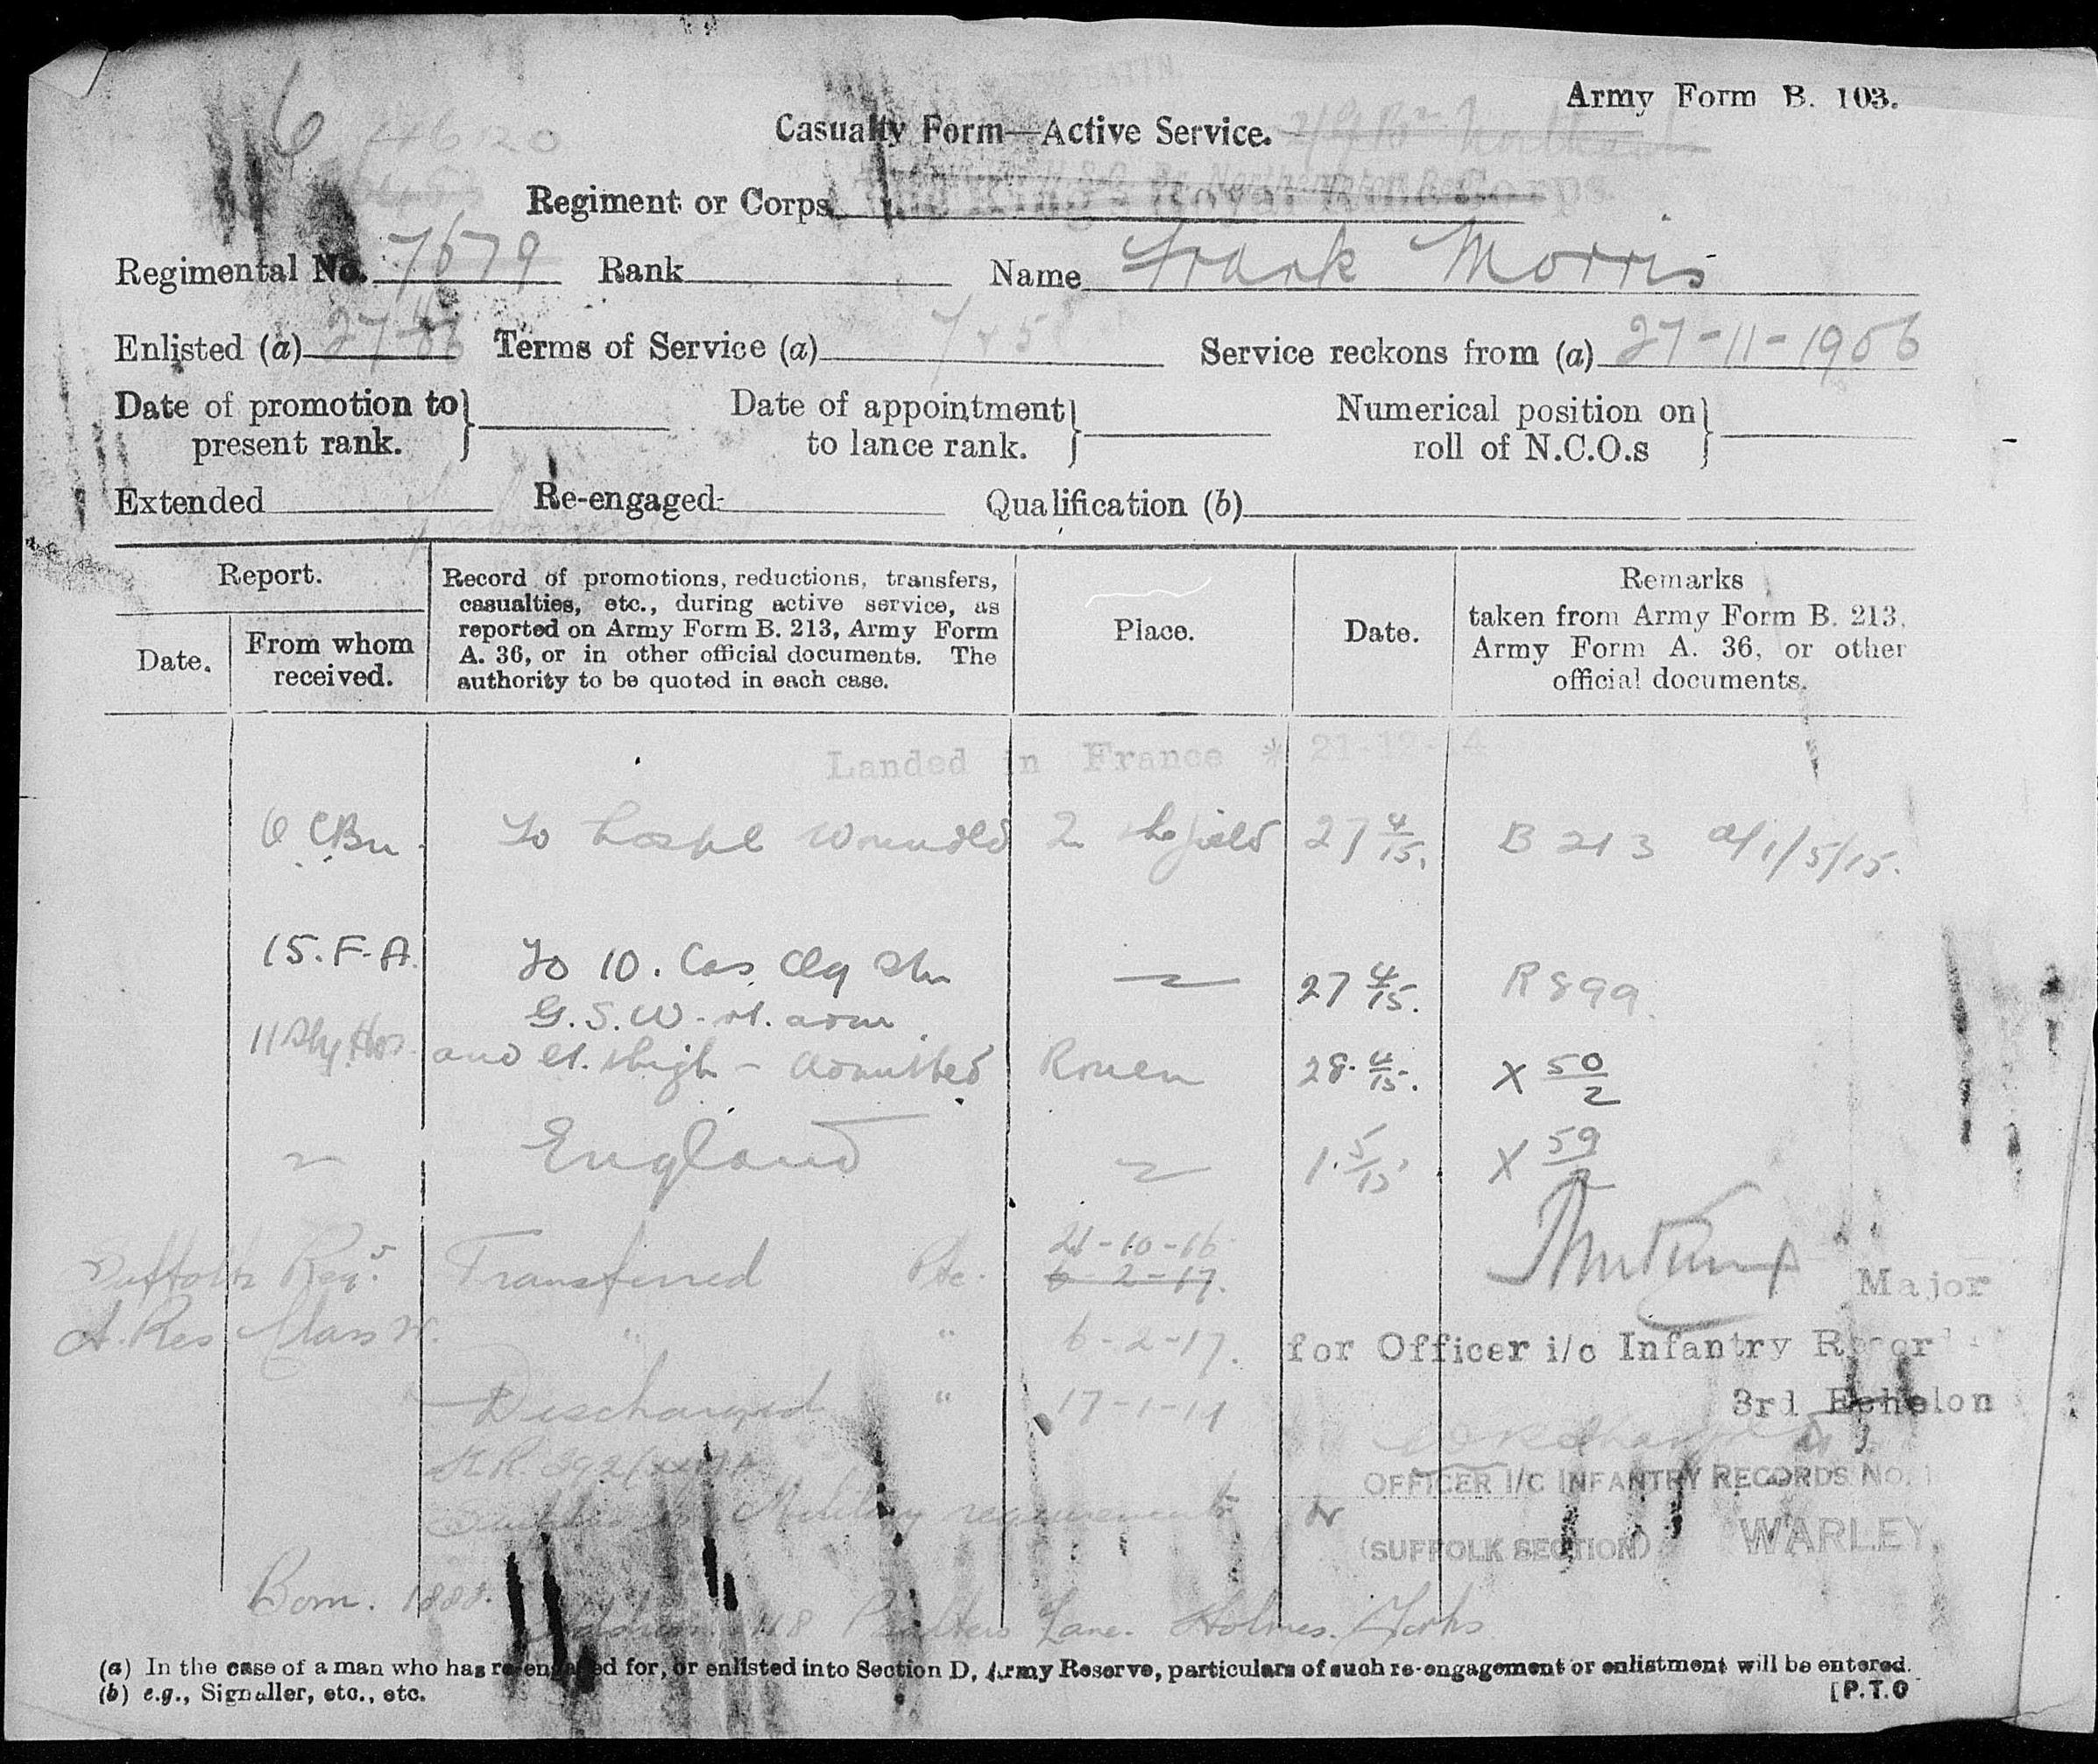 Army Form B. 103.
6 46120
Casualty Form—Active Service.
Regiment or Corps The King's Royal Rifle Corps.
Regimental No. 7679 Rank Name Frank Morris
Enlisted (a) Terms of Service (a) 7 + 5 Service reckons from (a) 27-11-1906
Date of promotion to present rank. } Date of appointment to lance rank. } Numerical position on roll of N.C.O.s }
Extended Re-engaged Qualification (b)
Report.
Date.
From whom received.
Record of promotions, reductions, transfers,
casualties, etc., during active service, as
reported on Army Form B. 213, Army Form
A. 36, or in other official documents. The
authority to be quoted in each case.
Place.
Date.
Remarks
taken from Army Form B. 213,
Army Form A. 36, or other
official documents.
Landed in France * 21-12-4
O C Bn. To hospl wounded 27 4/15. B 213 d/1/5/15.
15. F. A. To 10. Cas Clg Stn 27 4/15. R899.
G. S. W. rt. arm
11 Sty Hos. and lt. thigh - admitted Rouen 28. 4/15. X 50/2
England 1. 5/15 X 59/2
Suffolk Reg. Transferred Pte. 21-10-16
6-2-17.
Major
A. Res Class W. " " 6-2-17. for Officer i/c Infantry Record
Discharged " 17-1-19
3rd Echelon
K.R. 392
Military requirements
OFFICER I/C INFANTRY RECORDS NO. 1
(SUFFOLK SECTION) WARLEY.
Born. 1888.
Address. Psalters Lane. Holmes. Yorks
(a) In the case of a man who has re-engaged for, or enlisted into Section D, Army Reserve, particulars of such re-engagement or enlistment will be entered.
(b) e.g., Signaller, etc., etc.
[P.T.O